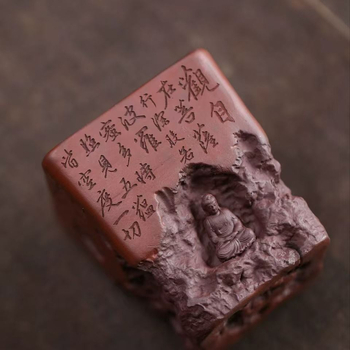 觀自
在菩薩
行深般若
波羅
蜜多時
照見五蘊
皆空度一切